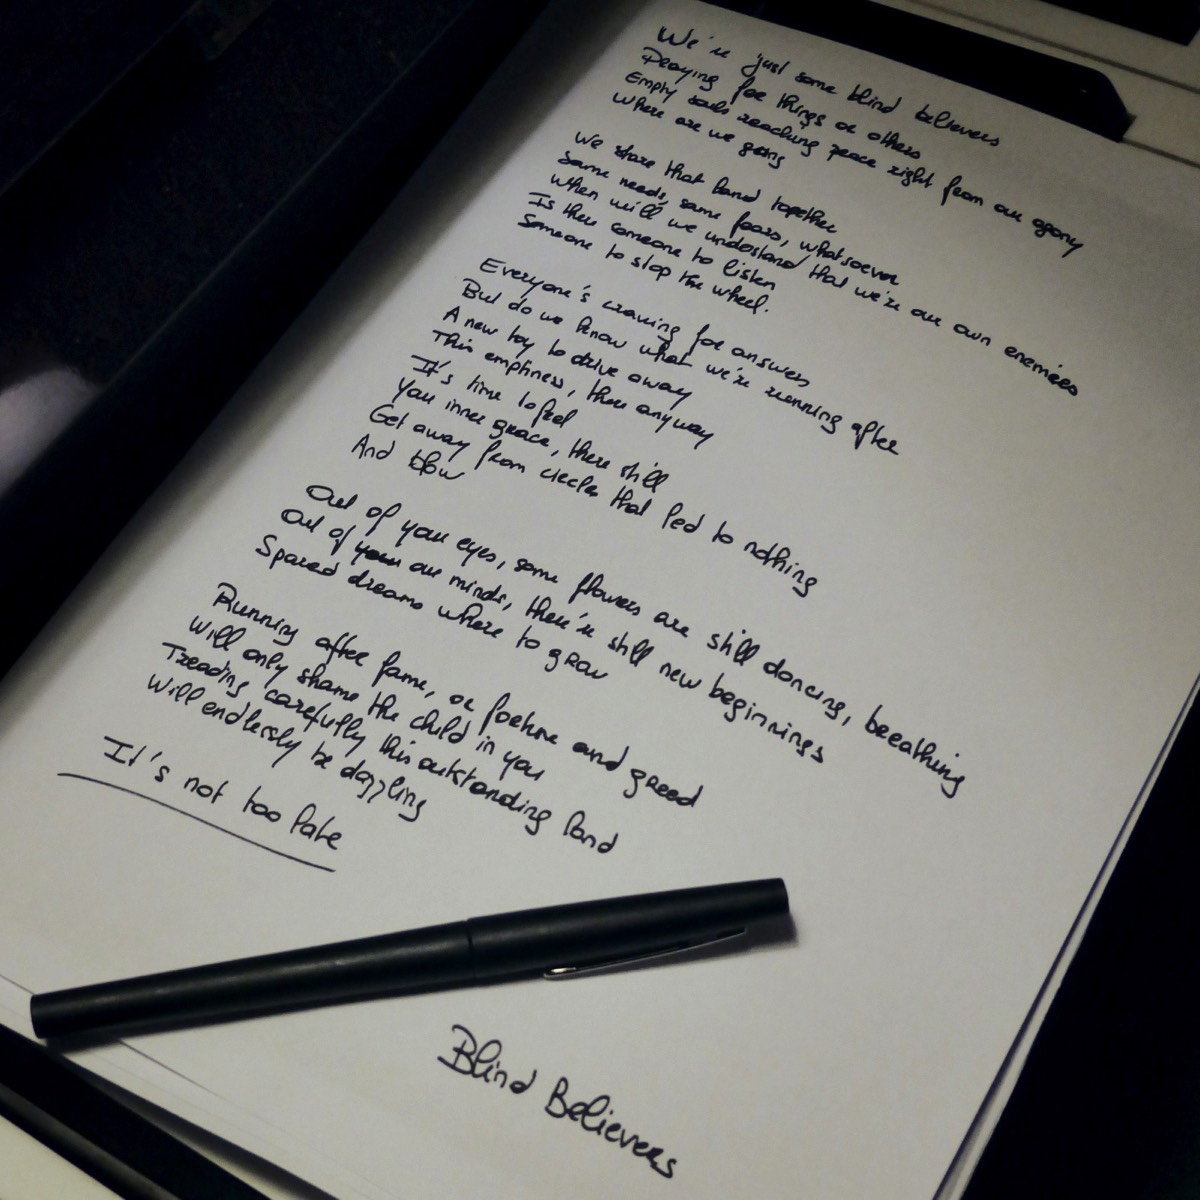 We're just some blind believers
Praying for things or others
Empty souls reaching peace right from our agony
Where are we going
We share that land together
Same needs, same fears, whatsoever
When will we understand that we're our own enemies
Is there someone to listen
Someone to stop the wheel.
Everyone's craving for answers
But do we know what we're running after
A new toy to drive away
This emptiness, there anyway
It's time to feel
Your inner grace, there still
Get away from circles that led to nothing
And
Out of your eyes, some flowers are still dancing, breathing
Out of our minds, there're still new beginnings
Spared dreams where to grow
Running after fame, or fortune and greed
Will only shame the child in you
Treading carefully this outstanding land
Will endlessly be dazzling
It's not too late
Blind Believers